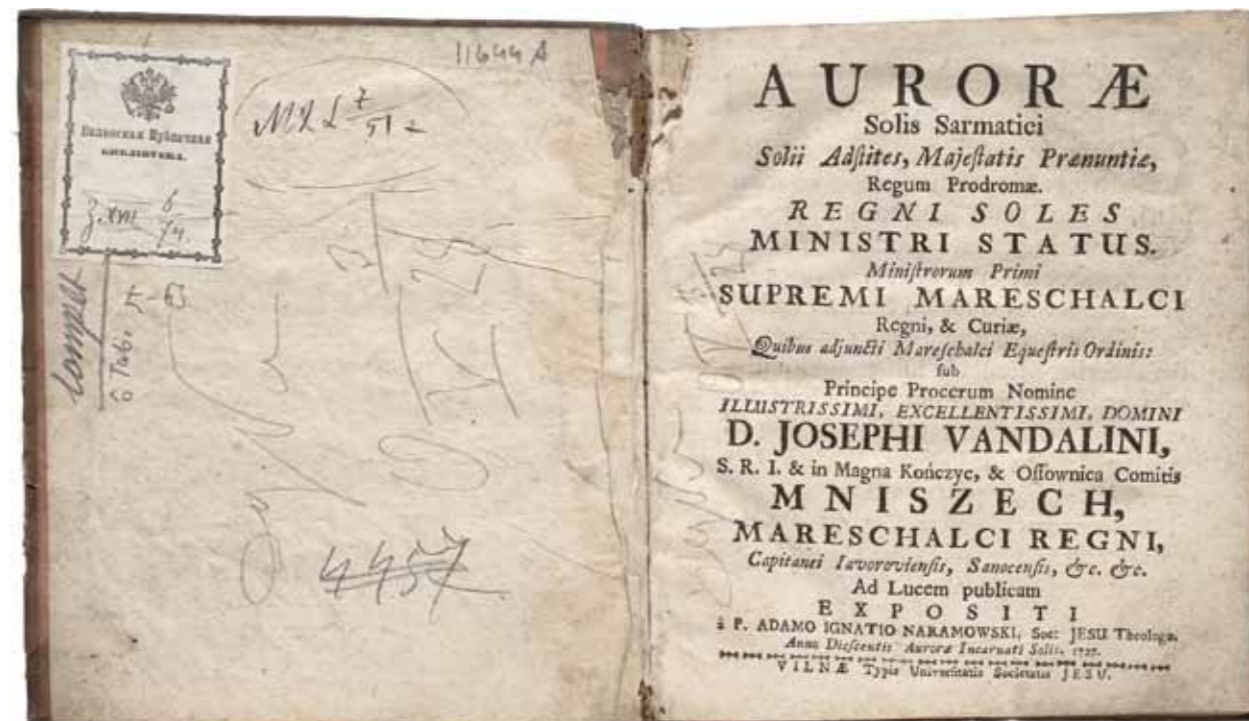 11644 A
Виленская Публичная
БИБЛІОТЕКА.
complet
6 Tab.
5-63
4457
AURORÆ
Solis Sarmatici
Solii Adſtites, Majeſtatis Prænuntiæ,
Regum Prodromæ.
REGNI SOLES
MINISTRI STATUS.
Miniſtrorum Primi
SUPREMI MARESCHALCI
Regni, & Curiæ,
Quibus adjuncti Mareſchalci Equeſtris Ordinis:
ſub
Principe Procerum Nomine
ILLUSTRISSIMI, EXCELLENTISSIMI, DOMINI
D. JOSEPHI VANDALINI,
S. R. I. & in Magna Kończyc, & Oſſownica Comitis
MNISZECH,
MARESCHALCI REGNI,
Capitanei Iavorovienſis, Sanocenſis, &c. &c.
Ad Lucem publicam
EXPOSITI
à P. ADAMO IGNATIO NARAMOWSKI, Soc: JESU Theologo.
Anno Dieſcentis Auroræ Incarnati Solis. 1727.
VILNÆ Typis Univerſitatis Societatis JESU.